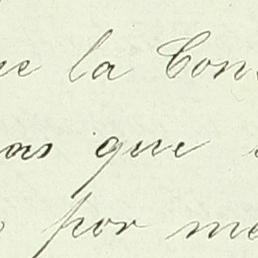 que la Con
as que
por me